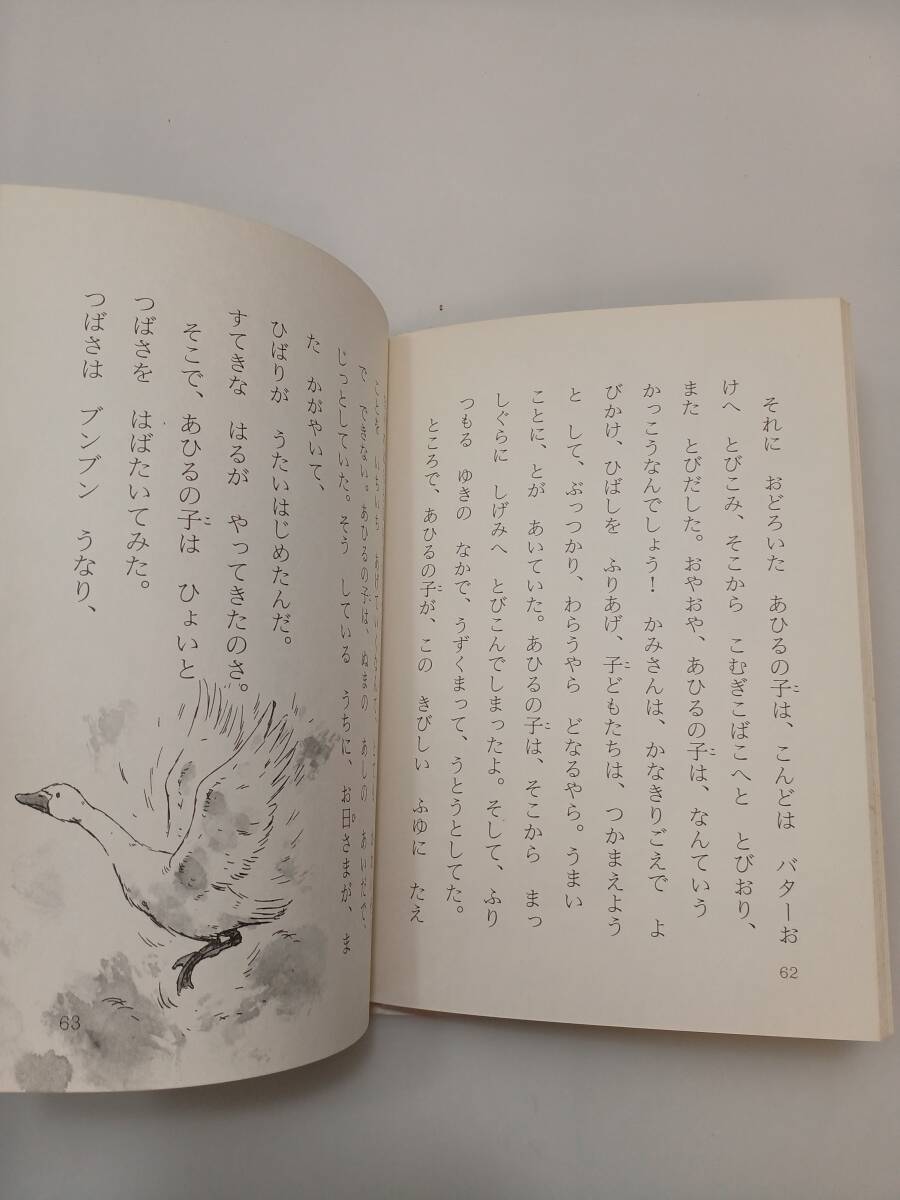 それに おどろいた あひるの子は、こんどは バターお
けへ とびこみ、そこから こむぎこばこへと とびおり、
また とびだした。おやおや、あひるの子は、なんていう
かっこうなんでしょう! かみさんは、かなきりごえで よ
びかけ、ひばしを ふりあげ、子どもたちは、つかまえよう
と して、ぶっつかり、わらうやら どなるやら。うまい
ことに、とが あいていた。あひるの子は、そこから まっ
しぐらに しげみへ とびこんでしまったよ。そして、ふり
つもる ゆきの なかで、うずくまって、うとうとしてた。
ところで、あひるの子が、この きびしい ふゆに たえ
62
ことを いちいち あげていくなんて、とても
で できない。あひるの子は、ぬまの あしの あいだで、
じっとしていた。そう している うちに、お日さまが、ま
た かがやいて、
ひばりが うたいはじめたんだ。
すてきな はるが やってきたのさ。
そこで、あひるの子は ひょいと
つばさを はばたいてみた。
つばさは ブンブン うなり、
63